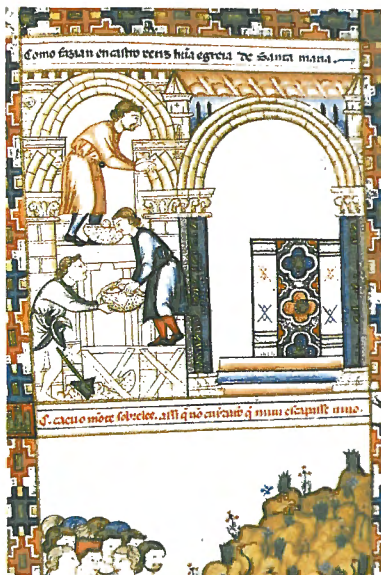 Como fazian en castro xeris hũa egreia de Santa maria.
C. caeu o mõte sobreles. assi q̃ nõ cuidarõ q̃ niun escapasse uiuo.